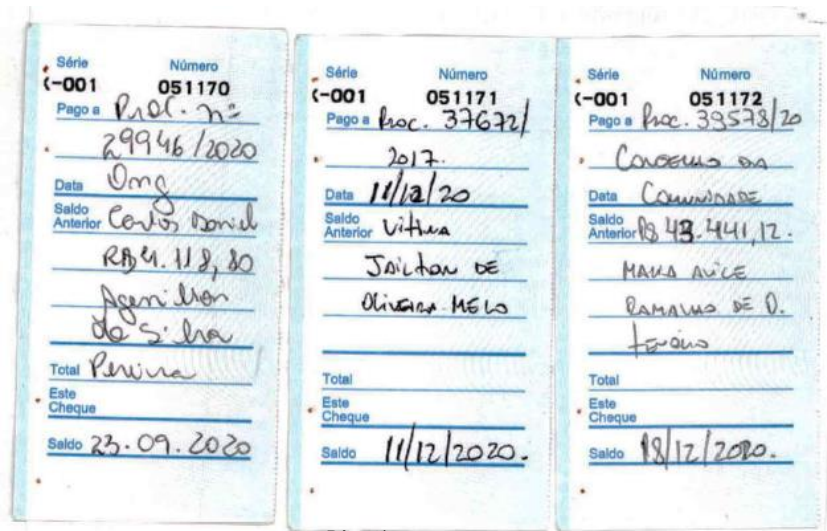 Série Número
(-001 051170
Pago a Proc. nº
29946/2020
Data Ong
Saldo Anterior Carlos Daniel
118,80
Agenilson
da Silva
Total Pereira
Este Cheque
Saldo 23.09.2020
Série Número
(-001 051171
Pago a Proc. 37672/
2017.
Data 11/12/20
Saldo Anterior Vítima
JAILTON DE
OLIVEIRA MELO
Total
Este Cheque
Saldo 11/12/2020.
Série Número
(-001 051172
Pago a Proc. 39578/20
CONSELHO DA
Data COMUNIDADE
Saldo Anterior R$ 43.441,12.
MARIA ALICE
RAMALHO DE O.
Total
Este Cheque
Saldo 18/12/2020.